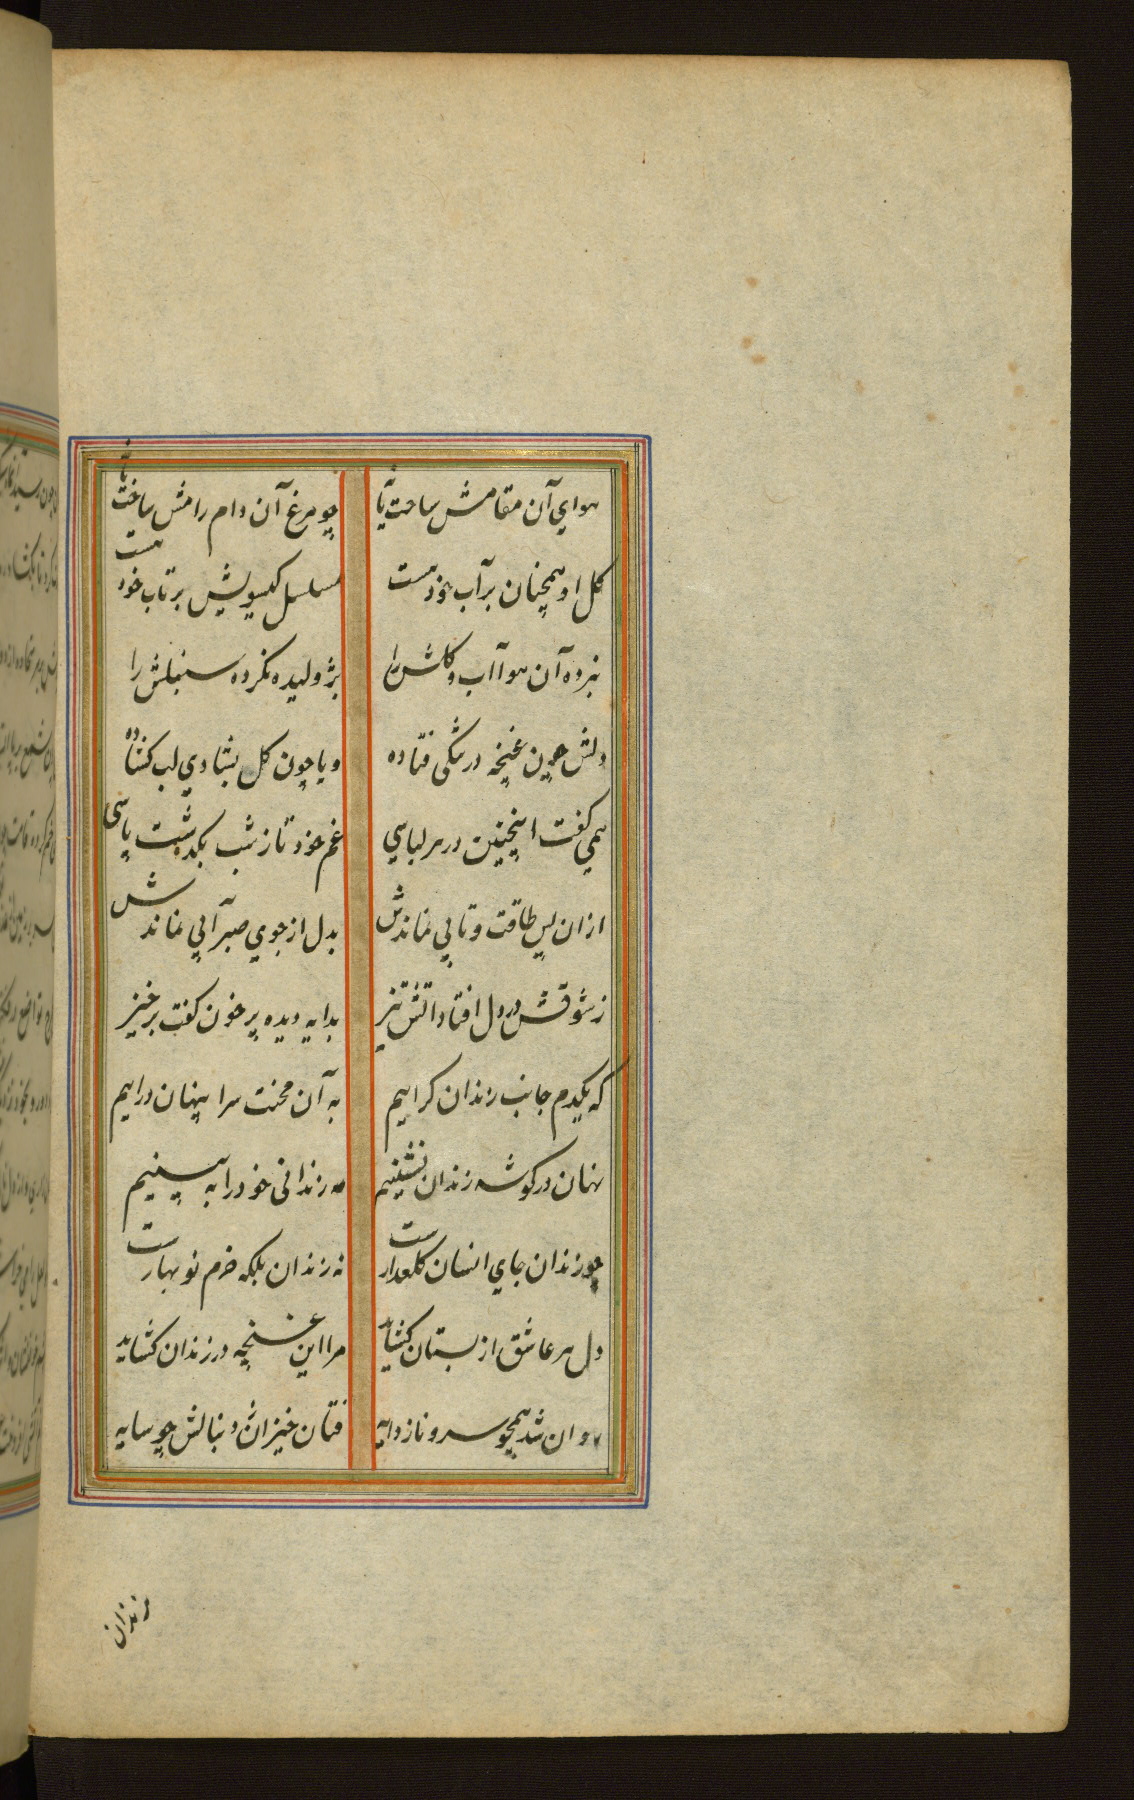 هواي آن مقامش ساخت يا نه
چو مرغ آن دام رامش ساخت يا نه
كل او همچنان بر آب خود هست
مسلسل كيسويش بر تاب خود هست
نبرده آن هوا آب و كلش را
بژوليده نكرده سنبلش را
دلش چون غنچه در تنكي فتاده
و يا چون كل بشادي لب كشاده
همي كفت اينچنين در هر لباسي
غم خود تا ز شب بكذشت پاسي
ازان پس طاقت و تابي نماندش
بدل از جوي صبر آبي نماندش
ز شوقش در دل افتاد آتش تيز
بدايه ديده پر خون كفت برخيز
كه يكدم جانب زندان كراييم
به آن محنت سرا پنهان دراييم
نهان در كوشه زندان نشينيم
مه زنداني خود را به بينيم
چو زندان جاي انسان كلعذارست
نه زندان بلكه خرم نو بهارست
دل هر عاشق از بستان كشايد
مرا اين غنچه در زندان كشايد
روان شد همچو سرو ناز و دايه
فتان خيزان دنبالش چو سايه
زندان